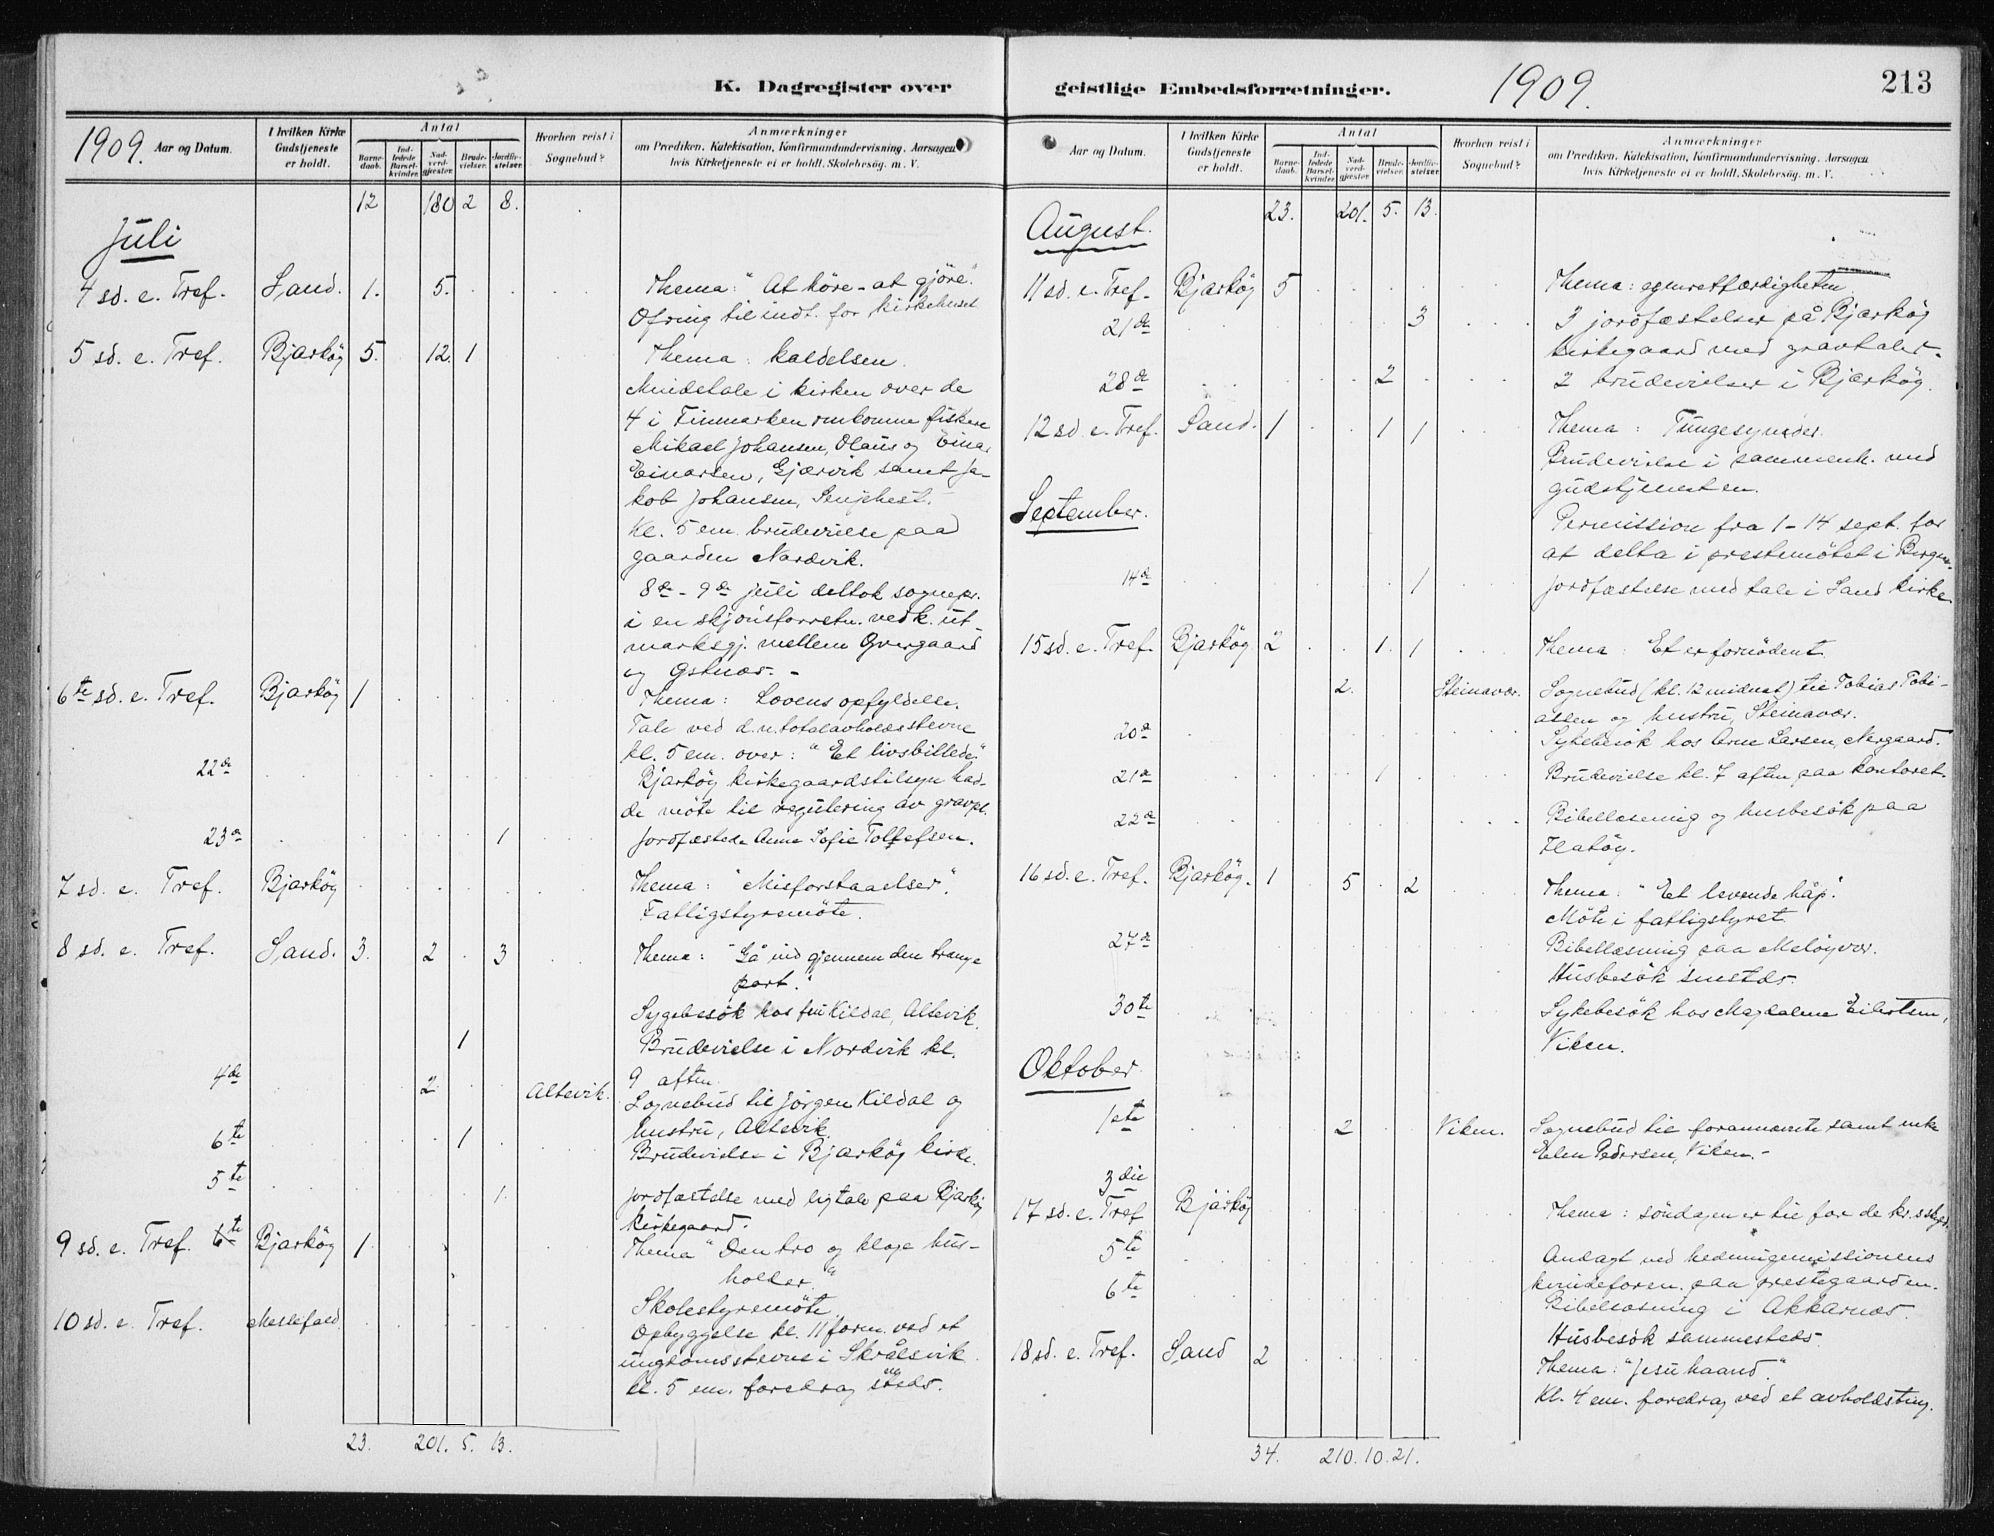 K. Dagregister over
1909. Aar og Datum.
I hvilken Kirke Gudstjeneste er holdt.
Antal
Barnedaab.
Indledede Barselkvinder.
Nadverdgjæster.
Brudevielser.
Jordfæstelser.
Hvorhen reist i Sognebud?
Anmærkninger
om Prædiken, Katekisation, Konfirmandundervisning, Aarsagen
hvis Kirketjeneste ei er holdt, Skolebesøg, m. V.
12 180 2 8.
Juli
4 sd. e. Tref. Sand. 1. 5. Thema: "At høre - at gjøre"
Ofring til indt. for kirkehuset
5 sd. e. Tref. Bjarkøy 5. 12. 1 Thema: kaldelsen.
Mindetale i kirken over de
4 i Finmarken omkomne fiskere
Mikael Johansen, Olaus og Einar
Einarsen, Gjærvik samt Ja-
kob Johansen, Senjehest.
Kl. 5 em. brudevielse paa
gaarden Nordvik.
8de - 9de juli deltok sognepr.
i en skjønsforretn. vedk. ut
marksgj. mellem Øvergaard
og Østnæs. -
6te sd. e. Tref. Bjarkøy 1 Thema: Lovens opfyldelse.
Tale ved d.n. totalavholdsstevne
kl. 5 em. over: "Et livsbillede"
22de Bjarkøy kirkegaardstilsyn had-
de møte til regulering av gravpl.
23de 1 Jordfæstede Anna Sofie Tollefsen.
7 sd. e. Tref. Bjarkøy Thema: "Misforstaaelser".
Fattigstyremøte.
8 sd. e. Tref. Sand. 3. 2 3 Thema: "Gå ind gjennem den trange
port."
Sygebesøk hos Kildal, Altevik.
1 Brudevielse i Nordvik kl.
9 aften.
4de 2 Altevik. Sognebud til Jørgen Kildal og
hustru, Altevik.
6te 1 Brudevielse i Bjarkøy kirke.
5te 1. Jordfæstelse med ligtale paa Bjarkøy
kirkegaard.
9 sd. e. Tref. 6te Bjarkøy 1 Thema "Den tro og kloge hus-
holder"
Skolestyremøte.
10 sd. e. Tref. Meslefald. Opbyggelse kl. 11 form. ved et
ungdomsstevne i Skrålsvik.
kl. 5 em. foredrag
23. 201. 5. 13.
geistlige Embedsforretninger. 1909. 213
Aar og Datum.
I hvilken Kirke Gudstjeneste er holdt.
Antal
Barnedaab.
Indledede Barselkvinder.
Nadverdgjæster.
Brudevielser.
Jordfæstelser.
Hvorhen reist i Sognebud?
Anmærkninger
om Prædiken, Katekisation, Konfirmandundervisning, Aarsagen
hvis Kirketjeneste ei er holdt, Skolebesøg, m. V.
23. 201. 5. 13.
August.
11 sd. e. Tref. Bjarkøy 5 Thema: egenretfærdigheten
21de 3 3 jordfæstelser på Bjarkøy
kirkegaard med gravtaler.
28de 2 2 brudevielser i Bjarkøy.
12 sd. e. Tref. Sand. 1 1 1 Thema: Tungesynder.
Brudevielse i sammenh. med
gudstjenesten.
September.
Permission fra 1-14 sept. for
at delta i prestemøtet i Bergen.
14de 1 Jordfæstelse med tale i Sand kirke
15 sd. e. Tref. Bjarkøy 2 1 1 Thema: Et er fornødent
2. Steinavær. Sognebud (kl. 12 midnat) til Tobias Tobi-
assen og hustru, Steinavær.
20de Sykebesøk hos Arne Larsen, Nergaard.
21de 1 Brudevielse kl. 7 aften paa kontoret.
22de Bibellæsning og husbesøk paa
Flatøy.
16 sd. e. Tref. Bjarkøy. 1 5 2 Thema: "Et levende håp".
Møte i fattigstyret.
27de Bibellæsning paa Meløyvær.
Husbesøk smstds.
30te Sykebesøk hos Magdalene Eilertsen,
Viken.
Oktober.
1ste 2 Viken. Sognebud til forannævnte samt enke
Elen Pedersen, Viken. -
3die
17 sd. e. Tref Bjarkøy Thema: søndagen er til for de
5te Andagt ved hedningemissionens
kvindeforen. paa prestegaarden.
6te Bibellæsning i Akkarnæs.
Husbesøk sammesteds.
18 sd. e. Tref. Sand 2 Thema: "Jesu haand."
Kl. 4 em. foredrag ved et avholdsting.
34. 210. 10. 21.